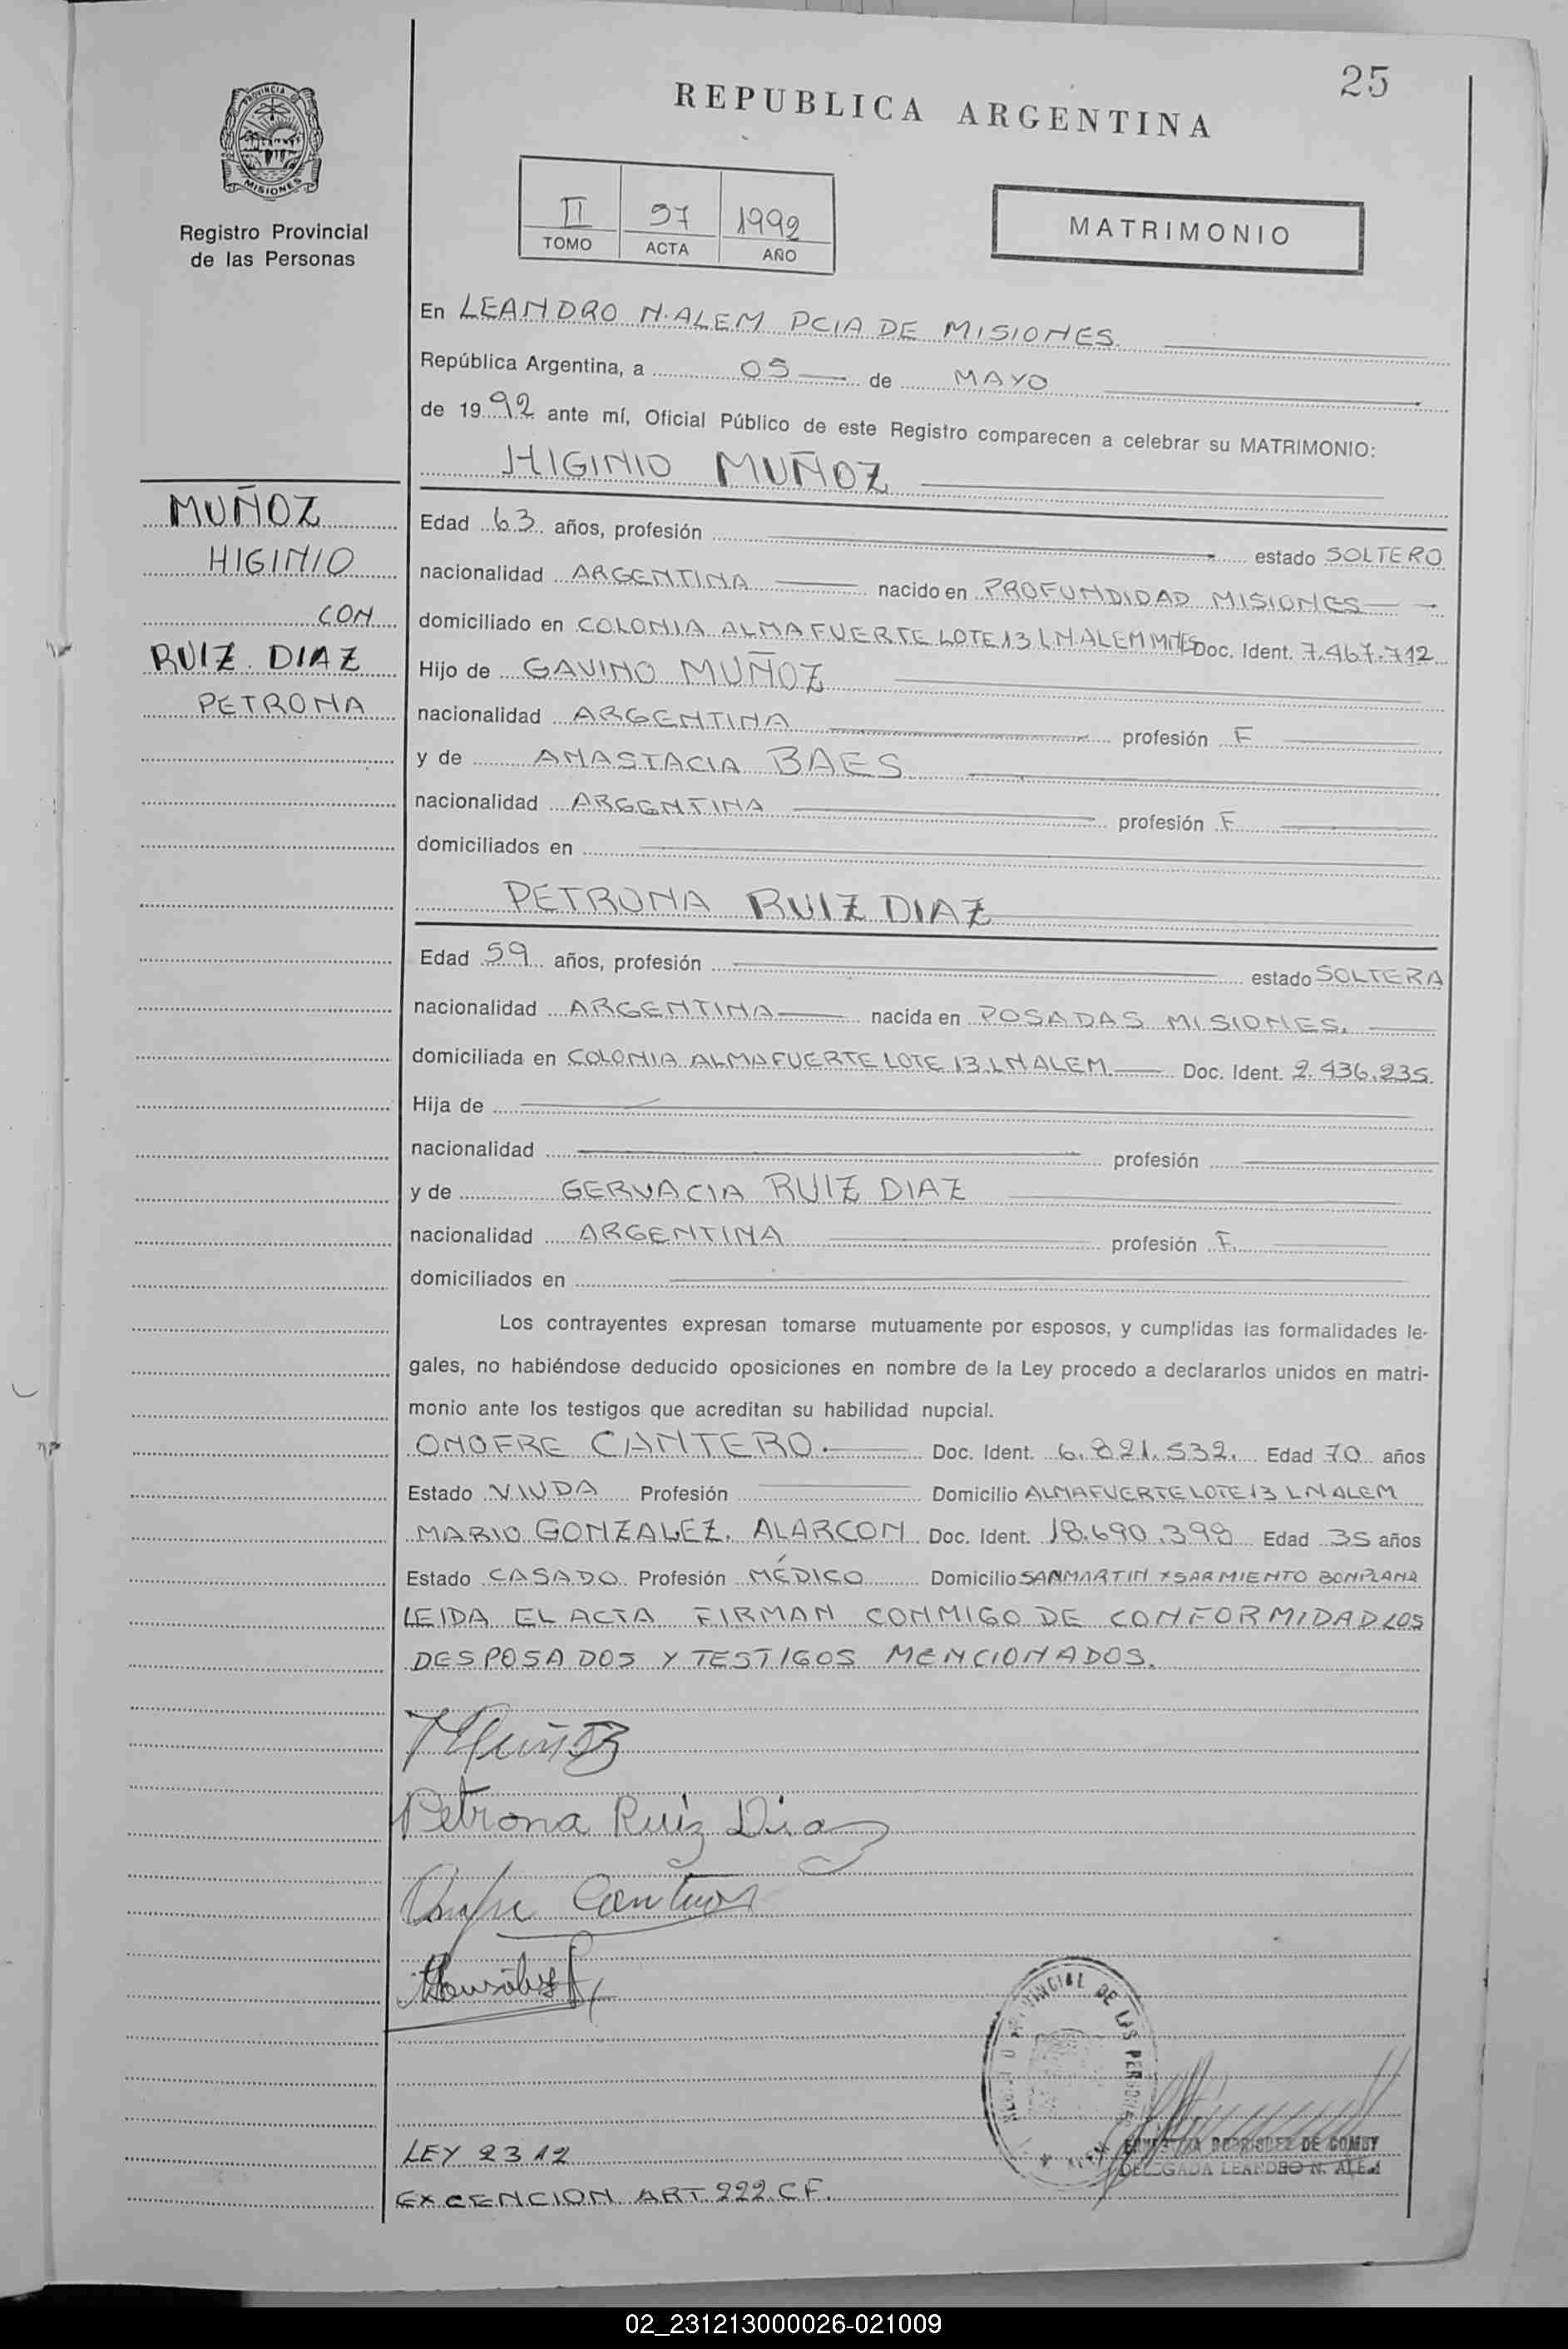 25
REPUBLICA ARGENTINA
PROVINCIA DE
MISIONES
Registro Provincial
de las Personas
II 97 1992
TOMO ACTA AÑO
MATRIMONIO
En LEANDRO N. ALEM PCIA DE MISIONES.
República Argentina, a 05 de MAYO
de 1992 ante mí, Oficial Público de este Registro comparecen a celebrar su MATRIMONIO:
HIGINIO MUÑOZ
MUÑOZ
HIGINIO
CON
RUIZ DIAZ
PETRONA
Edad 63 años, profesión estado SOLTERO
nacionalidad ARGENTINA nacido en PROFUNDIDAD MISIONES
domiciliado en COLONIA ALMAFUERTE LOTE 13 L N ALEM MNES Doc. Ident. 7.467.712
Hijo de GAVINO MUÑOZ
nacionalidad ARGENTINA profesión F
y de ANASTACIA BAES
nacionalidad ARGENTINA profesión F
domiciliados en
PETRONA RUIZ DIAZ
Edad 59 años, profesión estado SOLTERA
nacionalidad ARGENTINA nacida en POSADAS MISIONES.
domiciliada en COLONIA ALMAFUERTE LOTE 13 L N ALEM Doc. Ident. 2.436.235
Hija de
nacionalidad profesión
y de GERVACIA RUIZ DIAZ
nacionalidad ARGENTINA profesión F.
domiciliados en
Los contrayentes expresan tomarse mutuamente por esposos, y cumplidas las formalidades le-
gales, no habiéndose deducido oposiciones en nombre de la Ley procedo a declararlos unidos en matri-
monio ante los testigos que acreditan su habilidad nupcial.
ONOFRE CANTERO. Doc. Ident. 6.821.532. Edad 70 años
Estado VIUDA Profesión Domicilio ALMAFUERTE LOTE 13 L N ALEM
MARIO GONZALEZ. ALARCON Doc. Ident. 18.690.398 Edad 35 años
Estado CASADO Profesión MÉDICO Domicilio SAN MARTIN Y SARMIENTO BONPLAND
LEIDA EL ACTA FIRMAN CONMIGO DE CONFORMIDAD LOS
DESPOSADOS Y TESTIGOS MENCIONADOS.
Muñoz
Petrona Ruiz Diaz
PROVINCIAL DE LAS PERSONAS
RODRIGUEZ DE
DELEGADA LEANDRO N. ALEM
LEY 2312
EXCENCION ART. 222 C F.
02_231213000026-021009